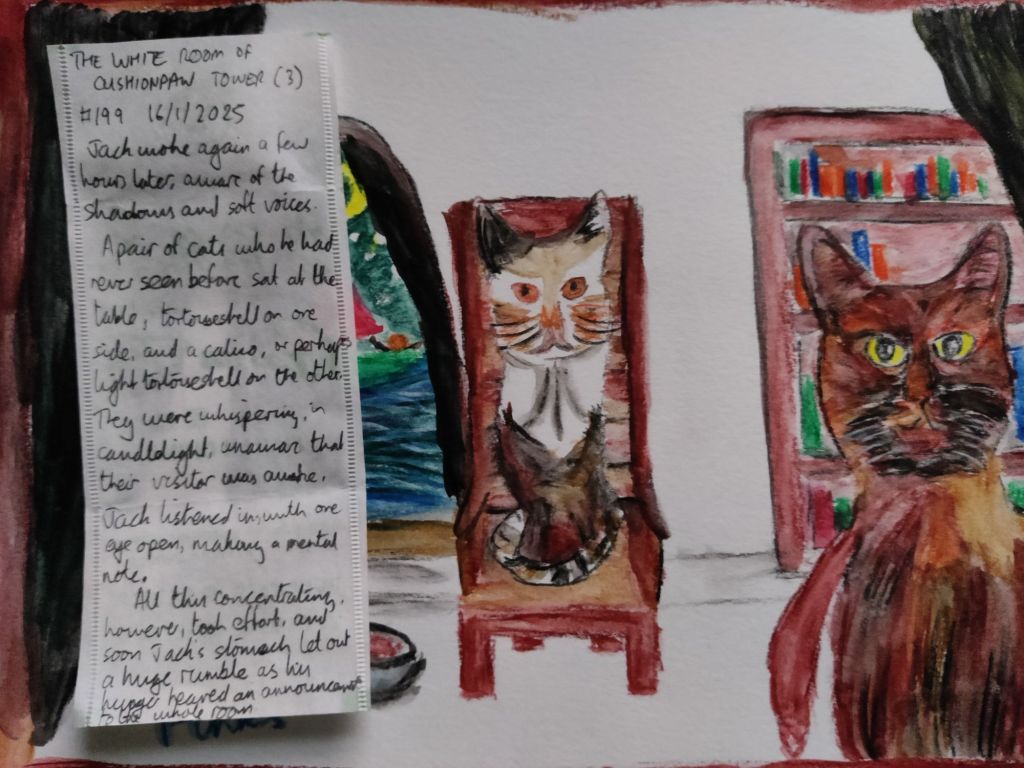 THE WHITE ROOM OF
CUSHIONPAW TOWER (3)
#199 16/1/2025
Jack woke again a few
hours later, aware of the
shadows and soft voices.
A pair of cats who he had
never seen before sat at the
table, tortoiseshell on one
side, and a calico, or perhaps
light tortoiseshell on the other.
They were whispering, in
candlelight, unaware that
their visitor was awake.
Jack listened in, with one
eye open, making a mental
note.
All this concentrating,
however, took effort, and
soon Jack's stomach let out
a huge rumble as his
hunger heaved an announcement
to the whole room.